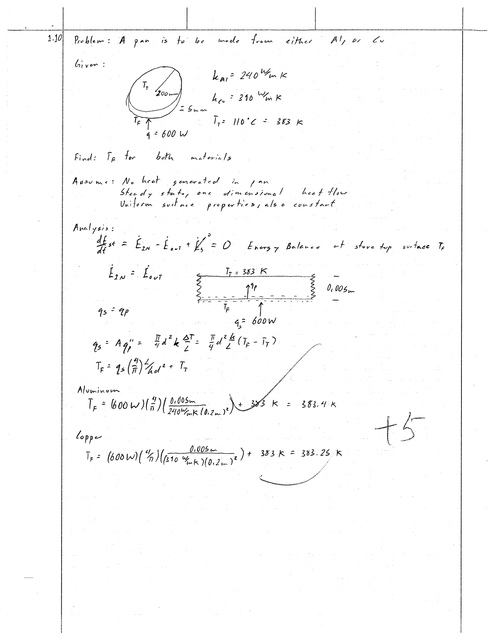 1.10 Problem: A pan is to be made from either Al, or Cu
Given:
T_T
200mm
= 5mm
T_F
q = 600 W
k_Al = 240 W/m K
k_cu = 390 W/m K
T_T = 110°C = 383 K
Find: T_F for both materials
Assume: No heat generated in pan
Steady state, one dimensional heat flow
Uniform surface properties, also constant
Analysis:
dE/dt st = Ė_IN - Ė_OUT + Ė_g⁰ = 0 Energy Balance at stove top surface T_F
Ė_IN = Ė_OUT
T_T = 383 K
q_p
0.005m
T_F
q_s = 600W
q_s = q_p
q_s = A q_p'' = π/4 d² k ΔT/L = π/4 d² k/L (T_F - T_T)
T_F = q_s (4/π) L/kd² + T_T
Aluminum
T_F = (600 W)(4/π)(0.005m/240 W/mK (0.2m)²) + 383 K = 383.4 K
+5
Copper
T_F = (600 W)(4/π)(0.005m/(390 W/mK)(0.2m)²) + 383 K = 383.25 K